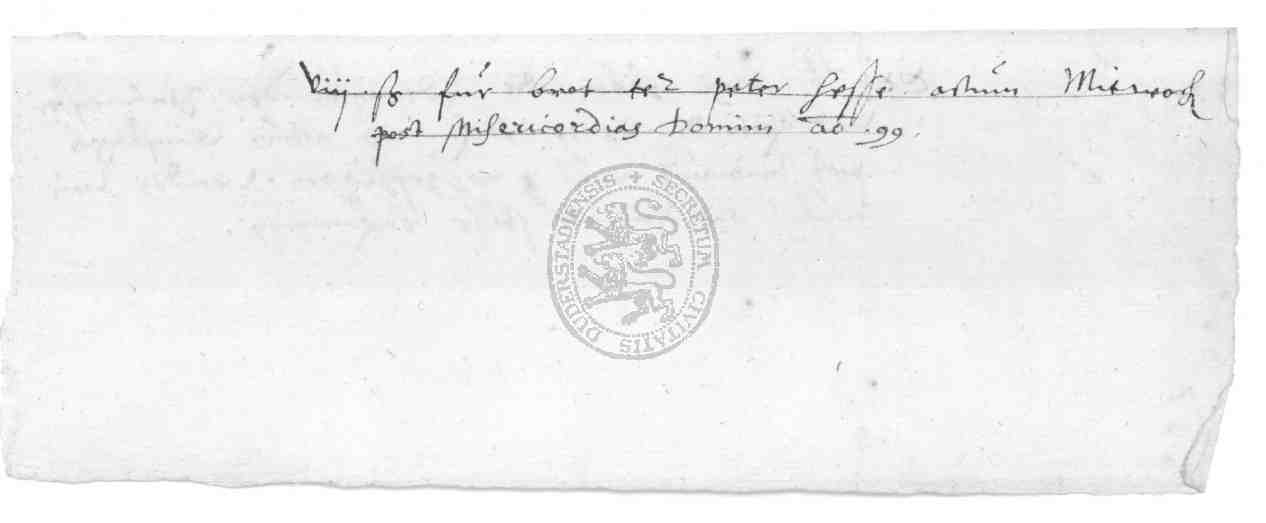 viiij ß für brot ter peter hesse actum Mitwoch
post Misericordias domini ao 99.
DUDERSTADIENSIS + SECRETUM CIVITATIS